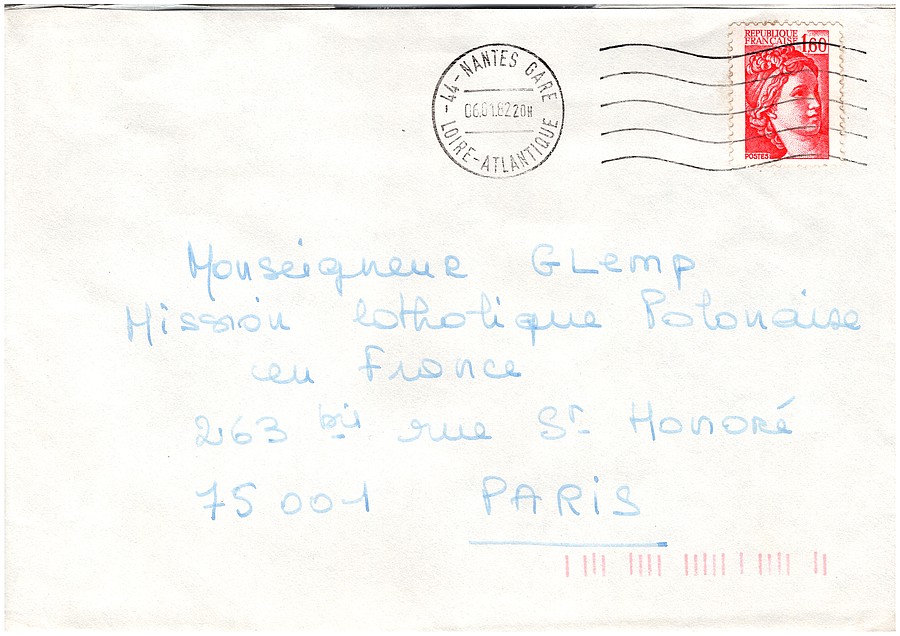 RÉPUBLIQUE
FRANÇAISE 1,60
POSTES
44 - NANTES GARE
06.01.82 20H
LOIRE-ATLANTIQUE
Monseigneur GLemp
Mission Catholique Polonaise
en France
263 bis rue St Honoré
75001 PARIS